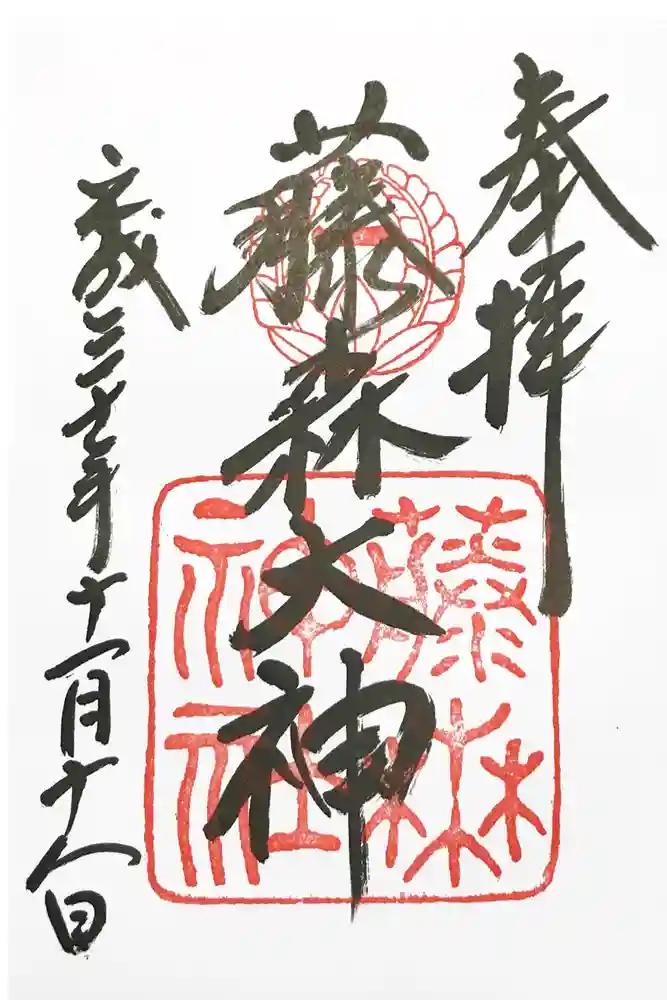 奉拝
藤森大神
平成二十七年十一月十八日
藤森神社